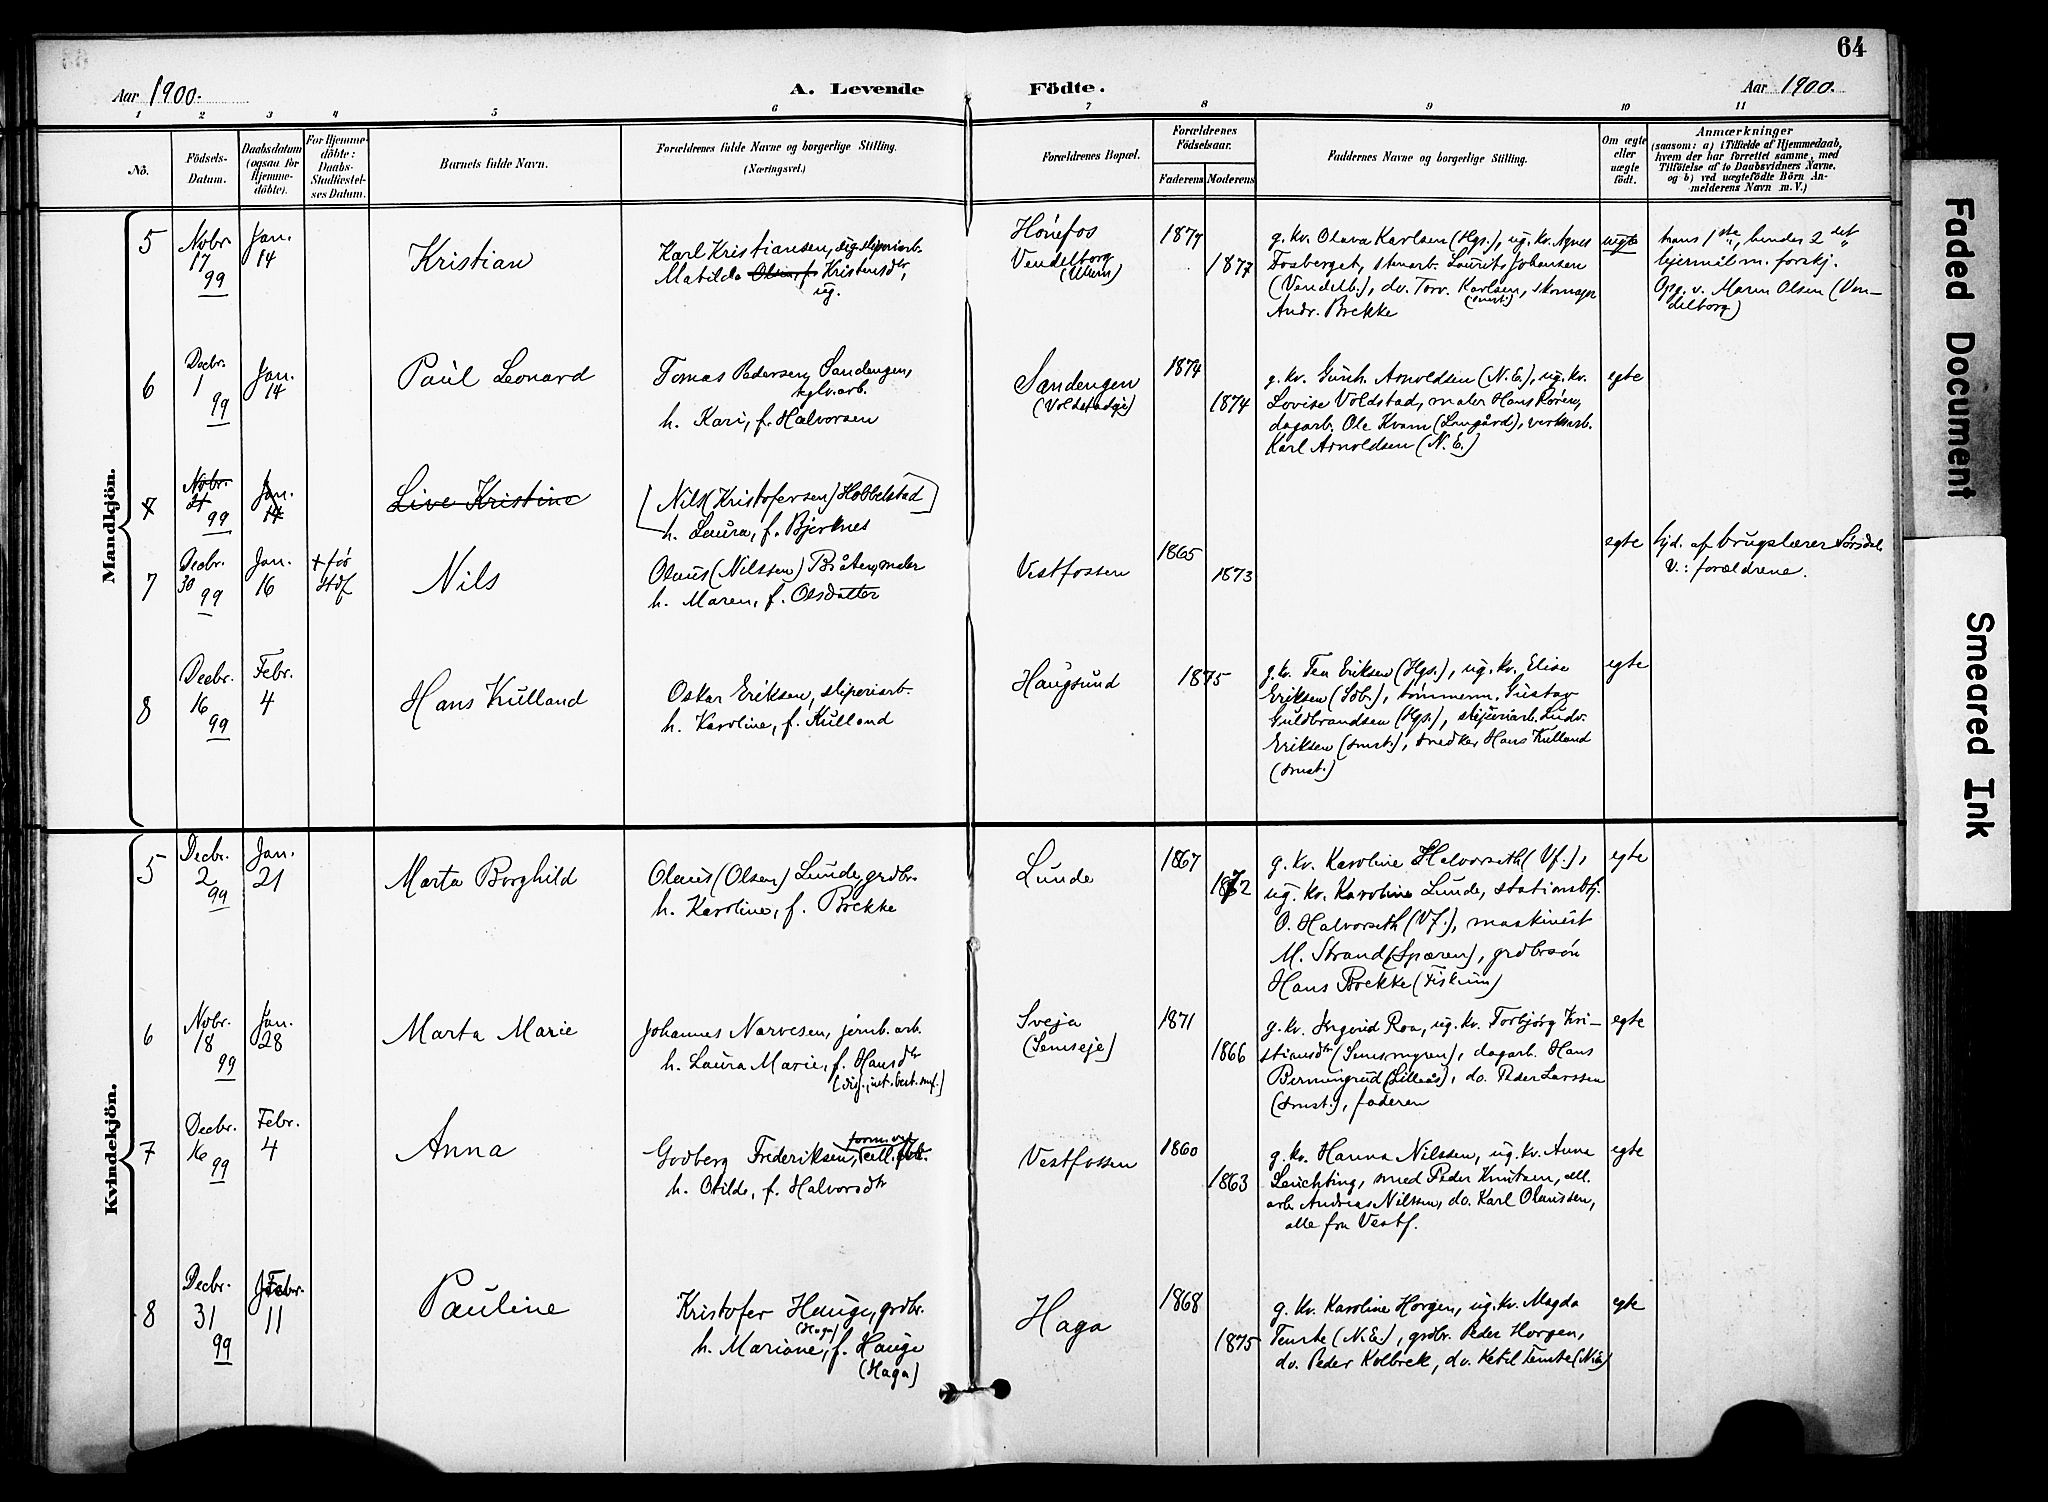 64
Aar 1900.
A. Levende Födte.
Aar 1900.
1 2 3 4 5 6 7 8 9 10 11
No.
Födsels-Datum.
Daabsdatum (ogsaa for Hjemme-döbte).
For Hjemme-döbte: Daabs-Stadfæstel-ses Datum.
Barnets fulde Navn.
Forældrenes fulde Navne og borgerlige Stilling.
(Næringsvei.)
Forældrenes Bopæl.
Forældrenes Födselsaar.
Faderens Moderens
Faddernes Navne og borgerlige Stilling.
Om ægte eller uægte födt.
Anmærkninger
(saasom: a) i Tilfælde af Hjemmedaab,
hvem der har forrettet samme, med
Tilföielse af to Daabsvidners Navne,
og b) ved uægtefödte Börn An-
melderens Navn m. V.)
Mandkjön.
5 Nobr. 17 99 Jan. 14
Kristian
Karl Kristiansen, ug. sliperiarb.
Matilda Kristensdtr,
ug.
Hönefos
Vendelborg
(Ulern)
1879
1877
g. kv. Olava Karlsen (Hgs.), ug. kv. Agnes
Fosberget, stenarb. Laurits Johansen
(Vendelb.), do. Torv. Karlsen, skomager
(smst.)
Andr. Brekke
uegte
hans 1ste, hendes 2det
lejermål m. forskj.
Opg. v. Maren Olsen (Ven-
delborg)
6 Decbr. 1 99 Jan. 14
Paul Leonard
Tomas Pedersen Sandengen,
h. Kari, f. Halvorsen
Sandengen
(Voldstadeje)
1874
1874
g. kv. Gunh. Arnoldsen (N.E.), ug. kv.
Lovise Voldstad, maler Hans Rören,
dagarb. Ole Kvam (Langård), verksarb.
Karl Arnoldsen (N.E.)
egte
7 Nobr. 21 99 Jan. 14
Live Kristine
Nils (Kristofersen) Hobbelstad
h. Laura, f. Bjerknes
7 Decbr. 30 99 Jan. 16
+ för
stdf
Nils
Olaus (Nilssen) Bråten, maler
h. Maren, f. Olsdatter
Vestfossen
1865
1873
egte
hjd. af brugslærer Sörsdal
v.: forældrene.
8 Decbr. 16 99 Febr. 4
Hans Kulland
Oskar Eriksen, sliperiarb.
h. Karoline, f. Kulland
Haugsund
1875
g. kv. Tea Eriksen (Hgs.), ug. kv. Elise
Eriksen (Sdb.), tömmerm. Gustav
Guldbrandsen (Hgs.), sliperiarb. Ludv.
Eriksen (smst.), snedker Hans Kulland
(smst.)
egte
Kvindekjön.
5 Decbr. 2 99 Jan. 21
Marta Borghild
Olaus (Olsen) Lunde, grdbr.
h. Karoline, f. Brekke
Lunde
1867
1872
g. kv. Karoline Halvorseth (Vf.),
ug. kv. Karoline Lunde, stationsbtj.
O. Halvorseth (Vf.), maskinist
M. Strand (Spæren), grdbrsön
Hans Brekke (Fiskum)
egte
6 Nobr. 18 99 Jan. 28
Marta Marie
Johannes Narvesen, jernb. arb.
h. Laura Marie, f. Hansdtr
Sveja
(Semseje)
1871
1866
g. kv. Ingrid Roa, ug. kv. Torbjörg Kri-
stiansdtr (Semsmyren), dagarb. Hans
Berningrud (Lilleås), do. Peder Larssen
(smst.), faderen
egte
7 Decbr. 16 99 Febr. 4
Anna
Godberg Frederiksen, cell.fbr.
formand
h. Otilde, f. Halvorsdtr
Vestfossen
1860
1863
g. kv. Hanna Nilssen, ug. kv. Anna
Leuchting, smed Peder Knutsen, cell.
arb. Andreas Nilssen, do. Karl Olaussen,
alle fra Vestf.
egte
8 Decbr. 31 99 Febr. 11
Pauline
Kristofer Hauge, grdbr.
(Haga)
h. Mariane, f. Hauge
(Haga)
Haga
1868
1875
g. kv. Karoline Horgen, ug. kv. Magda
Temte (N.E.), grdbr. Peder Horgen,
do. Peder Kolbrek, do. Ketil Temte (N.E.)
egte
Faded Document
Smeared Ink